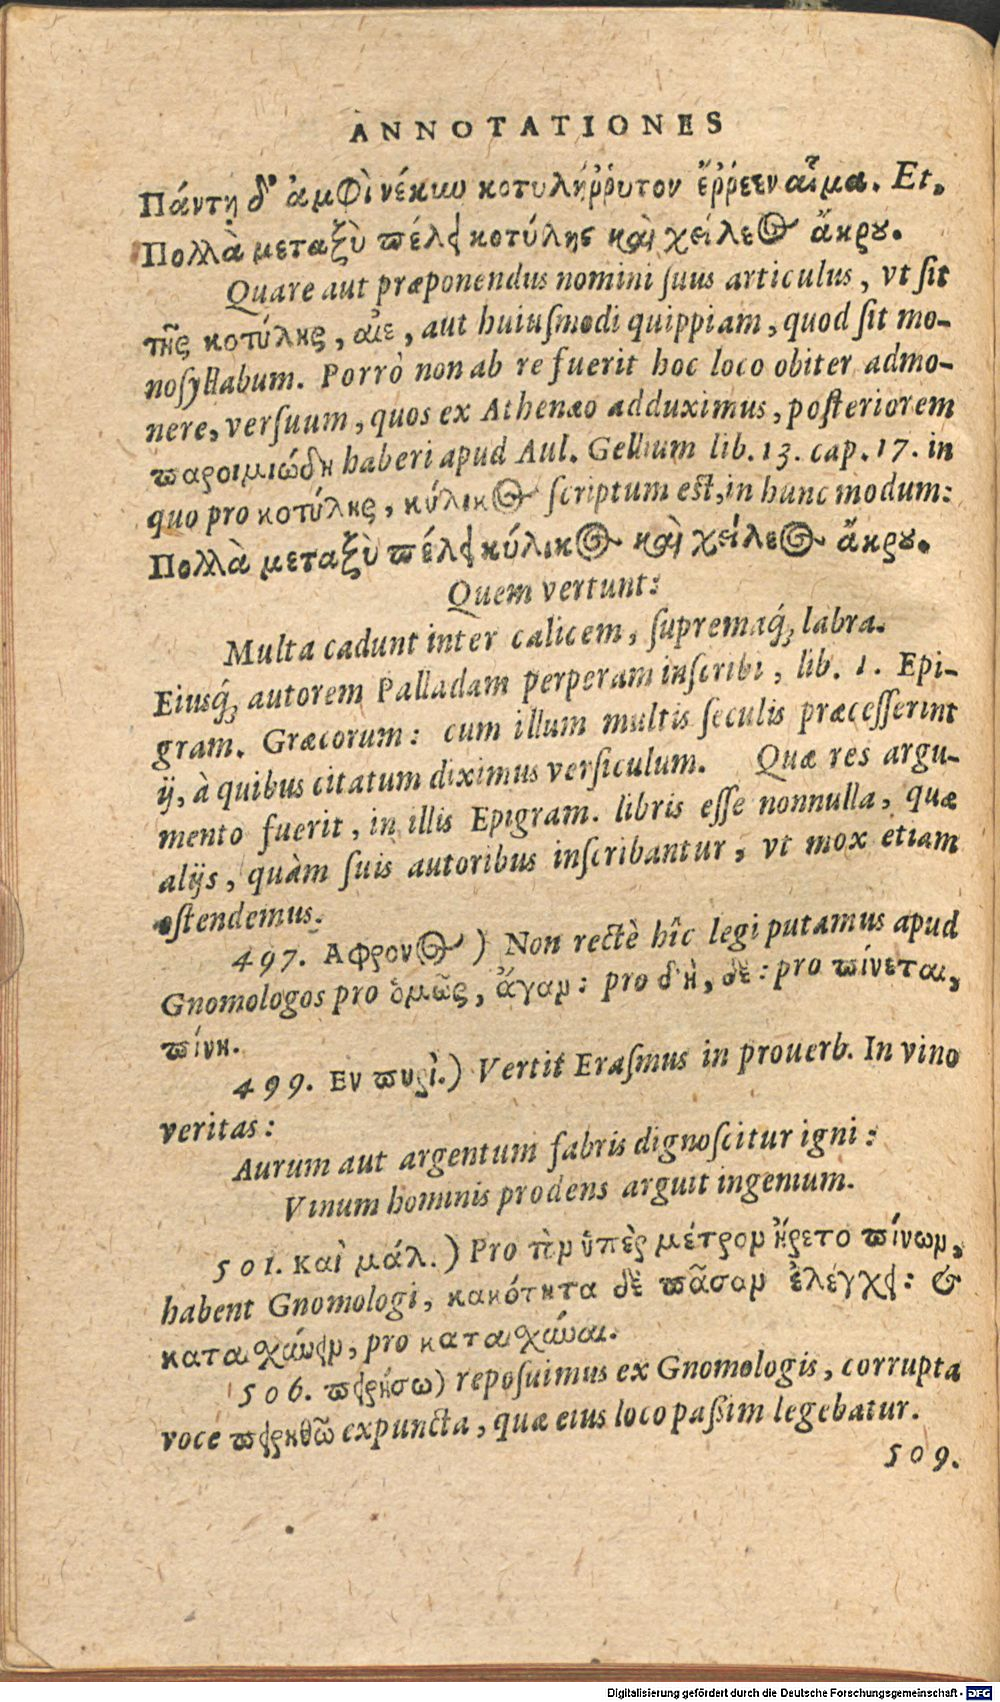 ANNOTATIONES
Πάντη δ' ἀμφὶ νέκυυ κοτυλήῤῥυτον ἔῤῥεεν αἷμα. Et,
Πολλὰ μεταξὺ πέλει κοτύλης καὶ χείλεος ἄκρου.
Quare aut præponendus nomini ſuus articulus, vt ſit
τῆς κοτύλης, αἰε, aut huiuſmodi quippiam, quod ſit mo-
noſyllabum. Porrò non ab re fuerit hoc loco obiter admo-
nere, verſuum, quos ex Athenæo adduximus, poſteriorem
παροιμιώδη haberi apud Aul. Gellium lib. 13. cap. 17. in
quo pro κοτύλης, κύλικος ſcriptum eſt, in hunc modum:
Πολλὰ μεταξὺ πέλει κύλικος καὶ χείλεος ἄκρου.
Quem vertunt:
Multa cadunt inter calicem, ſupremaq́; labra.
Eiusq́; autorem Palladam perperam inſcribi, lib. 1. Epi-
gram. Græcorum: cum illum multis ſeculis præceſſerint
ij, à quibus citatum diximus verſiculum. Quæ res argu-
mento fuerit, in illis Epigram. libris eſſe nonnulla, quæ
alijs, quàm ſuis autoribus inſcribantur, vt mox etiam
oſtendemus.
497. Αφρονος) Non rectè hîc legi putamus apud
Gnomologos pro ὁμῶς, ἄγαν: pro δὴ, δὲ: pro πίνεται,
πίνη.
499. Εν πυρὶ.) Vertit Eraſmus in prouerb. In vino
veritas:
Aurum aut argentum fabris dignoſcitur igni:
Vinum hominis prodens arguit ingenium.
501. Καὶ μάλ.) Pro τὴν ὑπὲρ μέτρον ἤρετο πίνων,
habent Gnomologi, κακότητα δὲ πᾶσαν ἐλέγχει: &
καταιχύνειν, pro καταιχύναι.
506. πειρήσω) repoſuimus ex Gnomologis, corrupta
voce πειρηθῶ expuncta, quæ eius loco paßim legebatur.
509.
Digitalisierung gefördert durch die Deutsche Forschungsgemeinschaft - DFG